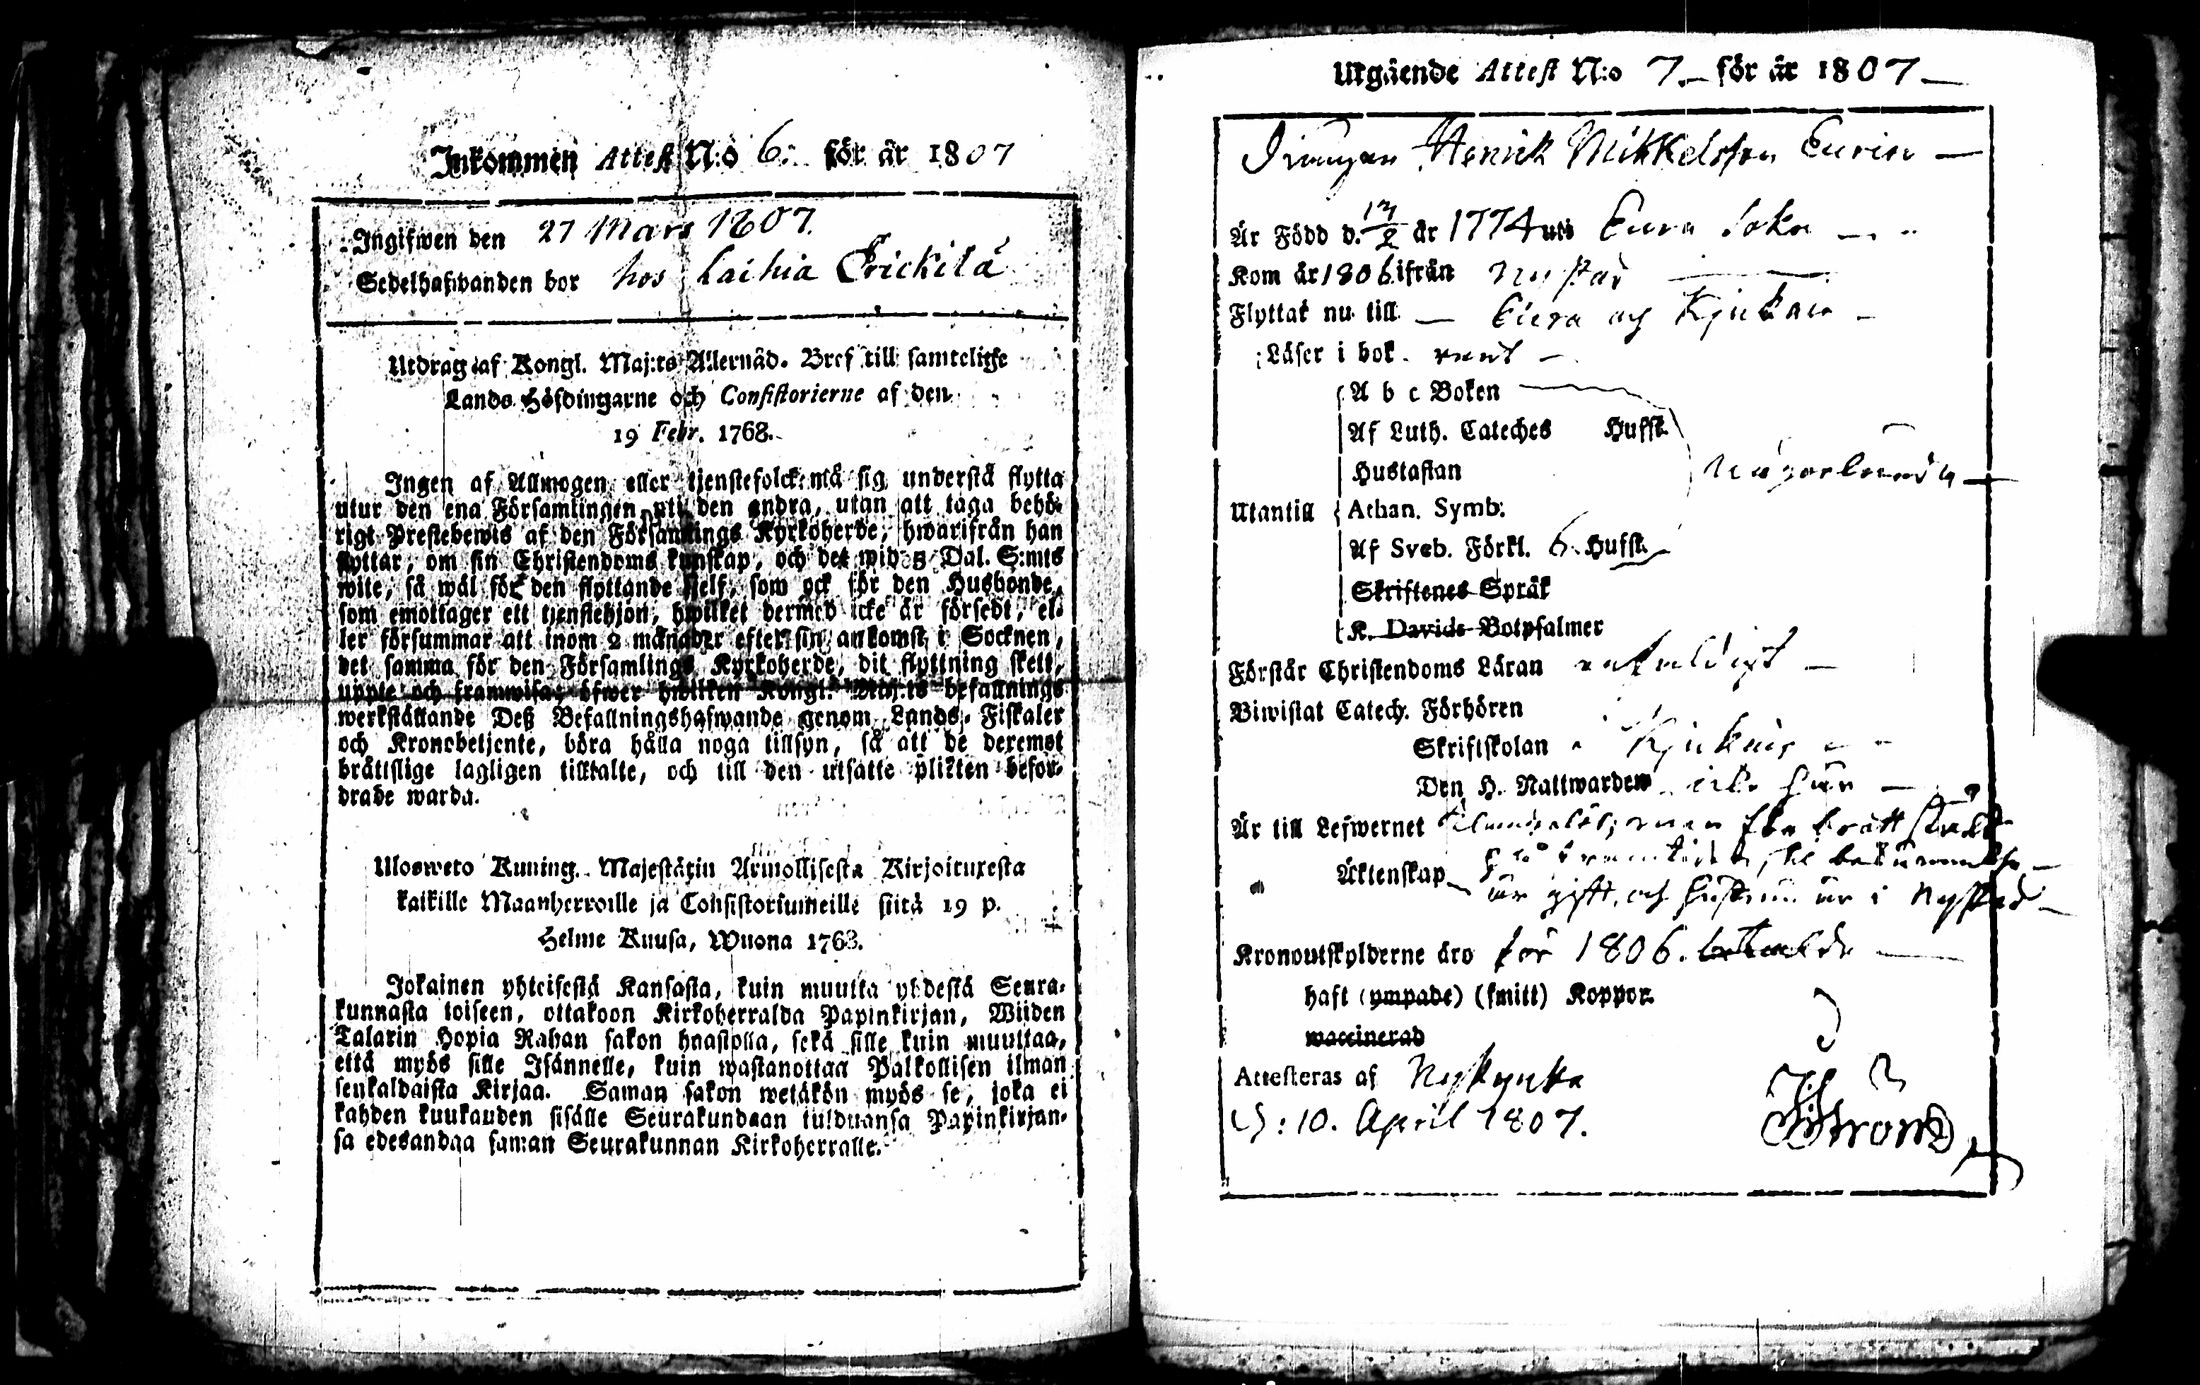 Inkommen Attest N:o 6. för år 1807
Ingifwen den 27 Mars 1807.
Sedelhafwanden bor hos Laihia Erickilä
Utdrag af Kongl. Maj:ts Allernåd. Bref till samtelige
Lands Höfdingarne och Consistorierne af den
19 Febr. 1768.
Ingen af Allmogen eller tjenstefolck må sig understå flytta
utur den ena Församlingen uti den andra, utan att taga behö-
rigt Prestebewis af den Församlings Kyrkoherde, hwarifrån han
flyttar, om sin Christendoms kunskap, och det wid 5 Dal. S:mts
wite, så wäl för den flyttande sjelf, som ock för den Husbonde,
som emottager ett tjenstehjon, hwilket dermed icke är försedt, el-
ler försummar att inom 2 månader efter sin ankomst i Socknen,
det samma för den Församlings Kyrkoherde, dit flyttning skett,
uppte och framwisa; öfwer hwilken Kongl. Maj:ts befallnings
werkställande Deß Befallningshafwande genom Lands-Fiskaler
och Kronobetjente, böra hålla noga tillsyn, så att de deremot
bråttslige lagligen tilltalte, och till den utsatte plikten befor-
drade warda.
Ulosweto Kuning. Majestätin Armollisesta Kirjoituxesta
kaikille Maanherroille ja Consistoriumeille siitä 19 p.
Helme Kuusa, Wuona 1768.
Jokainen yhteisestä Kansasta, kuin muutta yhdestä Seura-
kunnasta toiseen, ottakoon Kirkoherralda Papinkirjan, Wiiden
Talarin Hopia Rahan sakon haastolla, sekä sille kuin muuttaa,
että myös sille Isännelle, kuin wastanottaa Palkollisen ilman
senkaldaista Kirjaa. Saman sakon wetäkön myös se, joka ei
kahden kuukauden sisälle Seurakundaan tulduansa Papinkirjan-
sa edesandaa saman Seurakunnan Kirkoherralle.
Utgående Attest N:o 7. för år 1807
Drängen Henrik Mikkelsson Eurin
Är Född d. år 1774 uti Eura Sokn
Kom år 1806 ifrån Nystad
Flyttat nu till Eura och Kjukais
Läser i bok rent
A b c Boken
Af Luth. Cateches Hufst.
Hustaflan
någorlunda
Utantill Athan. Symb.
Af Sveb. Förkl. 6. Hufst.
Skriftenes Språk
K. Davids Botpsalmer
Förstår Christendoms Läran enfaldigt
Biwistat Catech. Förhören
Skriftskolan Kjukais
Den H. Nattwarden icke här
Är till Lefwernet
Äktenskap
är gift, och hustrun är i Nystad
Kronoutskylderne äro för 1806. betalde
haft (ympade) (smitt) Koppor.
waccinerad
Attesteras af Nykyrka
d: 10. April 1807.